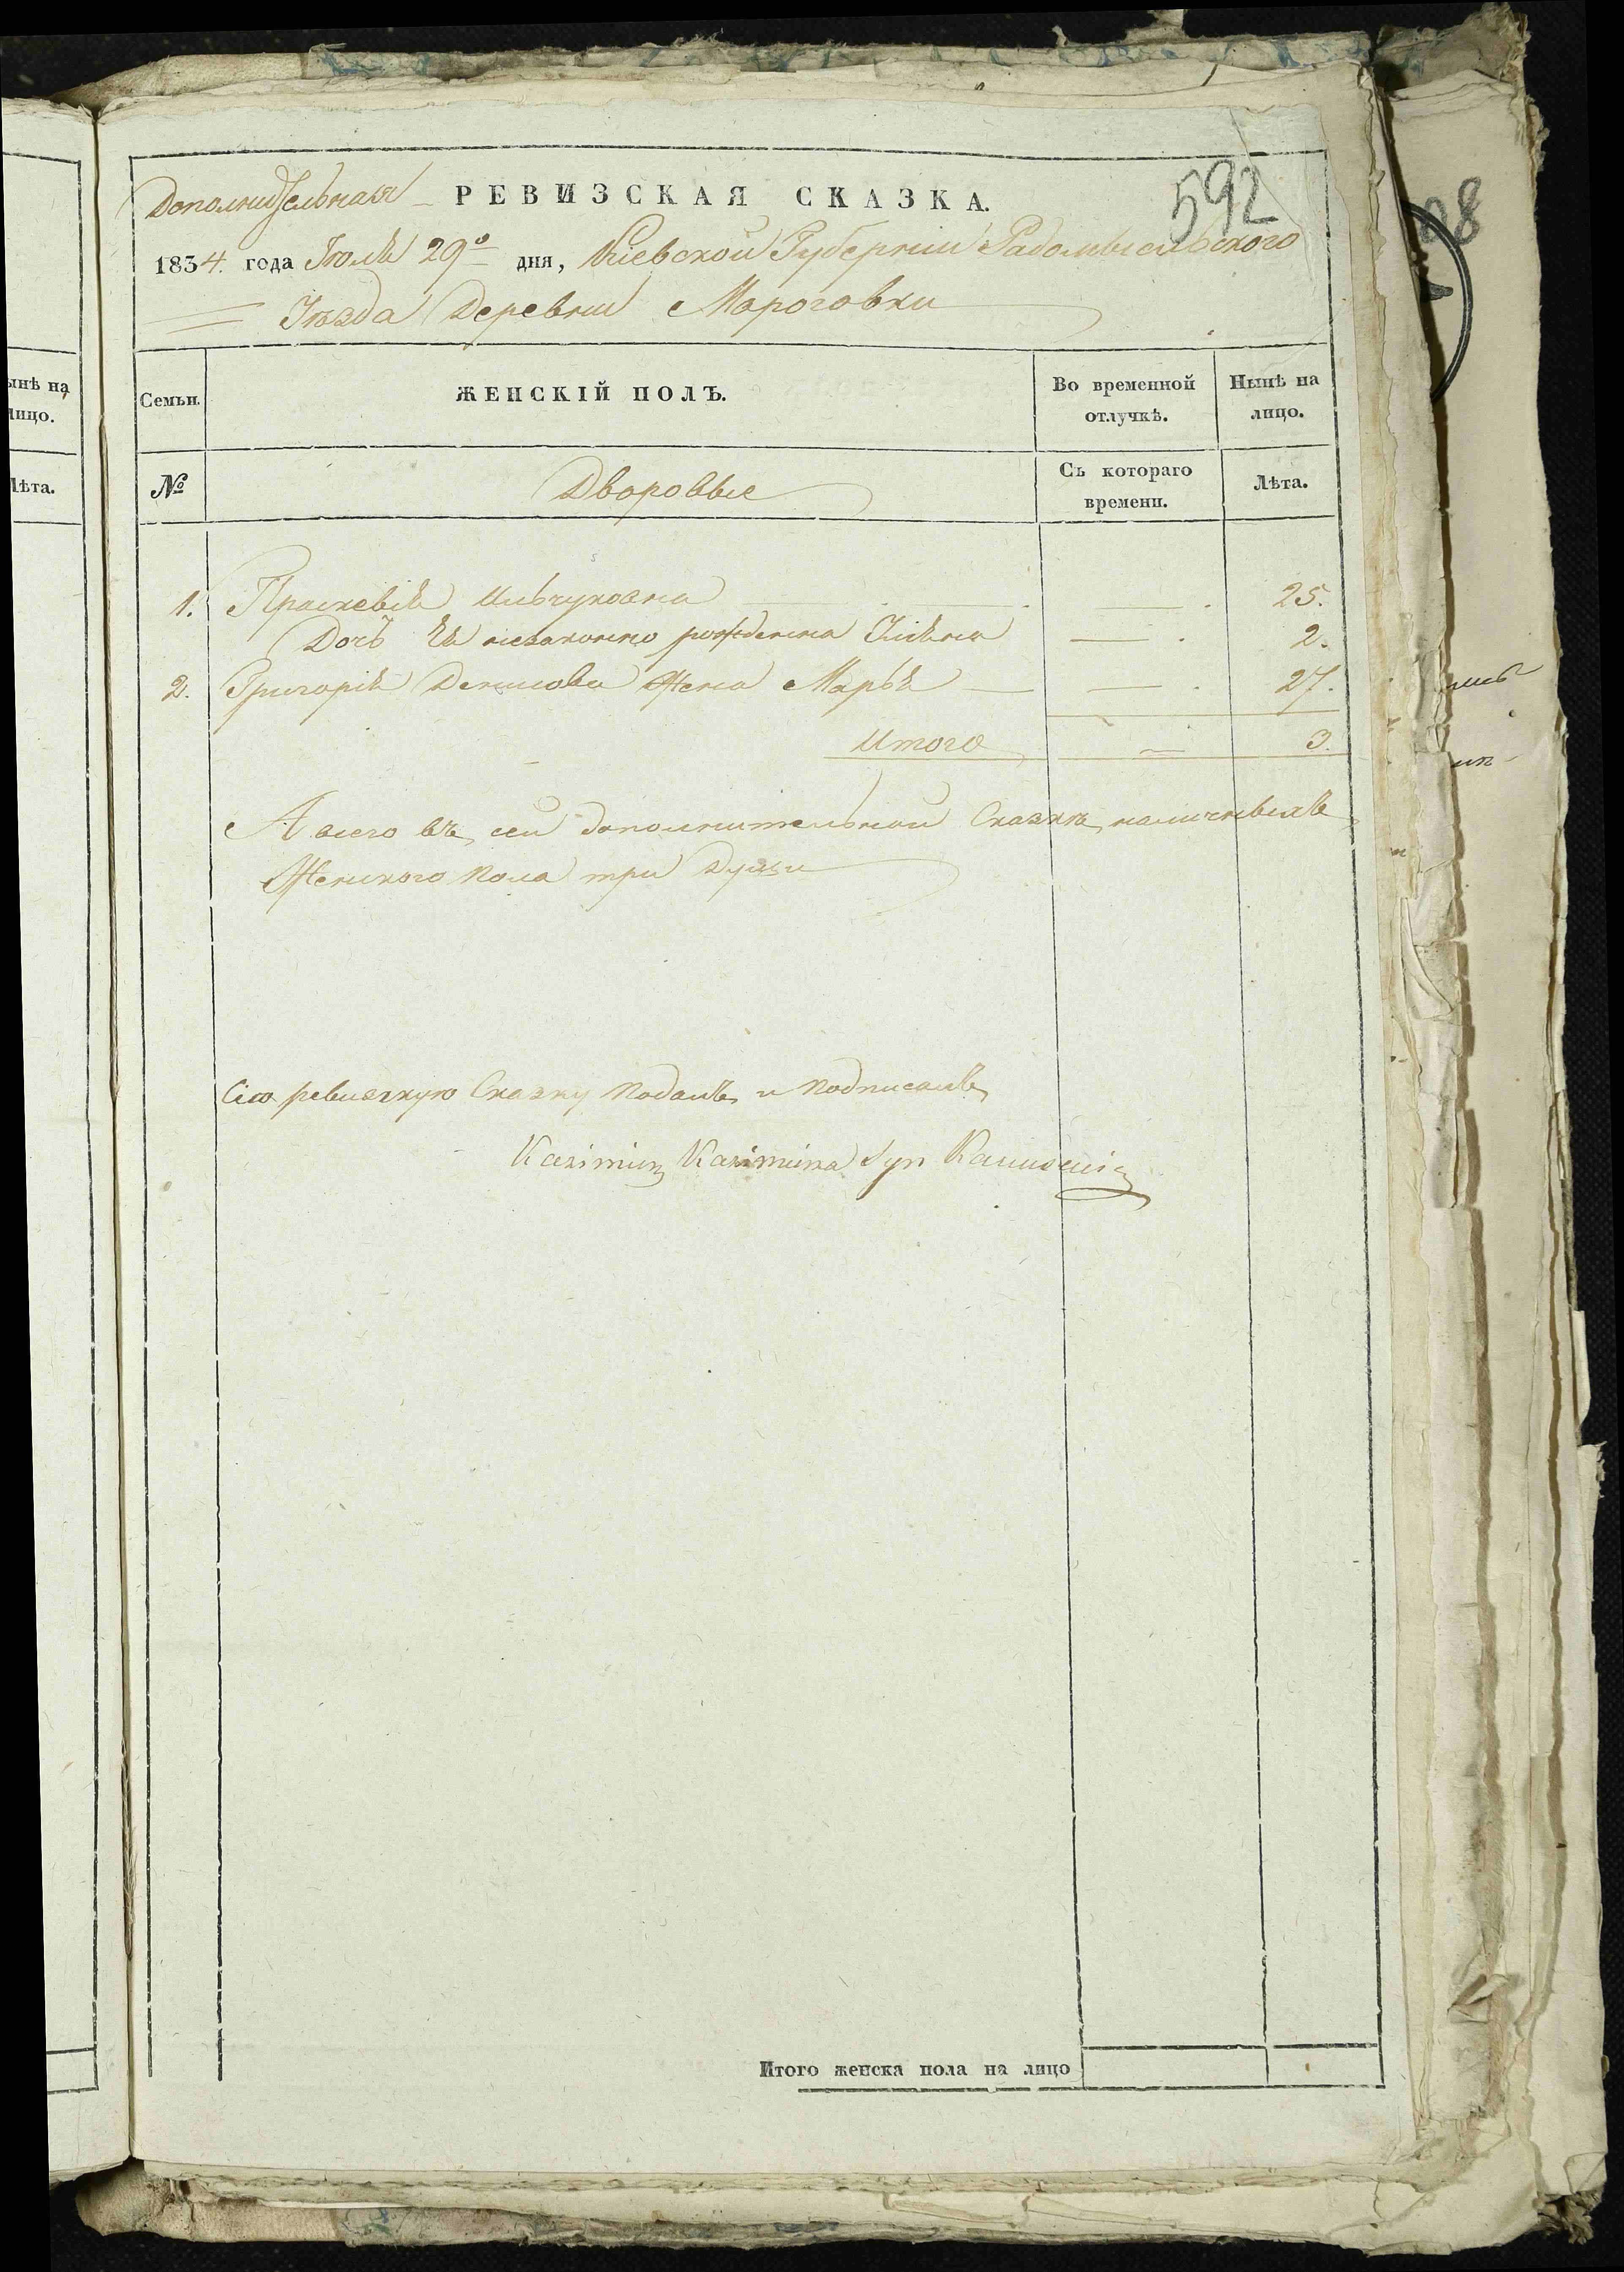 592
Дополнительная РЕВИЗСКАЯ СКАЗКА.
1834. года Іюля 29º дня, Кіевской Губерніи Радомысльского
Уѣзда Деревни Мароговки
Семьи. ЖЕНСКІЙ ПОЛЪ. Во временной отлучкѣ. Нынѣ на лицо.
№ Дворовые Съ котораго времени. Лѣта.
1. Прасковія Ильчуковна — 25.
Дочь Ея незаконно рожденна — 2.
2. Григорія Денисова Жена Марья — 27.
Итого — 3.
А всего въ сей дополнительной Сказкѣ наличныхъ
Женского пола три Души
Сію ревизскую Сказку подалъ и подписалъ
Kazimirz Kazimirza Syn
Итого женска пола на лицо
ынѣ на
лицо.
Лѣта.